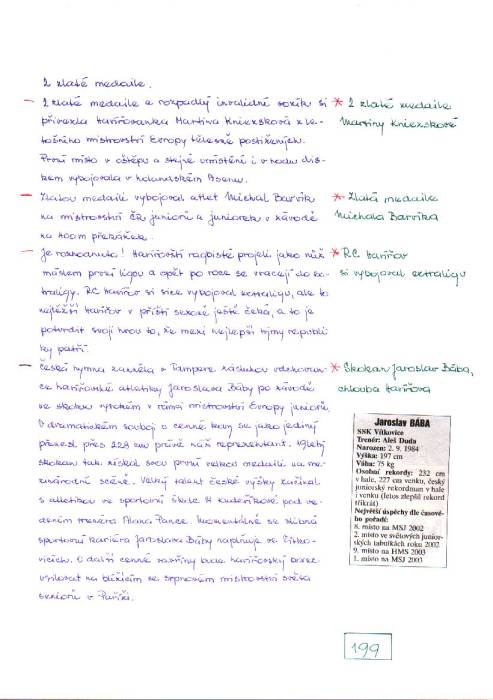 2 zlaté medaile.
— 2 zlaté medaile a rozpadlý invalidní vozík si
přivezla havířovanka Martina Kniezková z le-
tošního mistrovství Evropy tělesně postižených.
První místo v oštěpu a stejné umístění i v hodu dis-
kem vybojovala v holandském Assenu.
— Zlatou medaili vybojoval atlet Michal Barvík
na mistrovství ČR juniorů a juniorek v závodě
na 400m překážek.
— Je rozhodnuto! Havířovští ragbisté projeli jako nůž
máslem první ligou a opět po roce se vracejí do ex-
traligy. RC Havířov si sice vybojoval extraligu, ale to
nejtěžší Havířov v příští sezoně ještě čeká, a to je
potvrdit svojí hrou to, že mezi nejlepší týmy republi-
ky patří.
— Česká hymna zazněla v Tampere zásluhou odchovan-
ce havířovské atletiky Jaroslava Báby po závodě
ve skoku vysokém v rámci mistrovství Evropy juniorů.
V dramatickém souboji o cenné kovy se jako jediný
přenesl přes 228 cm právě náš reprezentant. 19letý
skokan tak získal svou první velkou medaili na me-
zinárodní scéně. Velký talent české výšky začínal
s atletikou ve sportovní škole M. Kudeříkové pod ve-
dením trenéra Milana Pance. Momentálně se slibná
sportovní kariéra Jaroslava Báby naplňuje ve Vítko-
vicích. O další cenné vavříny bude havířovský borec
usilovat na blížícím se srpnovém mistrovství světa
seniorů v Paříži.
* 2 zlaté medaile
Martiny Kniezkové
* Zlatá medaile
Michala Barvíka
* RC Havířov
si vybojoval extraligu
* Skokan Jaroslav Bába,
chlouba Havířova
Jaroslav BÁBA
SSK Vítkovice
Trenér: Aleš Duda
Narozen: 2. 9. 1984
Výška: 197 cm
Váha: 75 kg
Osobní rekordy: 232 cm
v hale, 227 cm venku, český
juniorský rekordman v hale
i venku (letos zlepšil rekord
třikrát)
Největší úspěchy dle časové-
ho pořadí:
8. místo na MSJ 2002
2. místo ve světových junior-
ských tabulkách roku 2002
9. místo na HMS 2003
1. místo na MSJ 2003
199